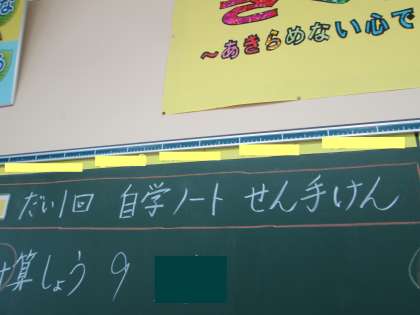 ～あきらめない心で
だい1回 自学ノート せん手けん
計算しょう 9